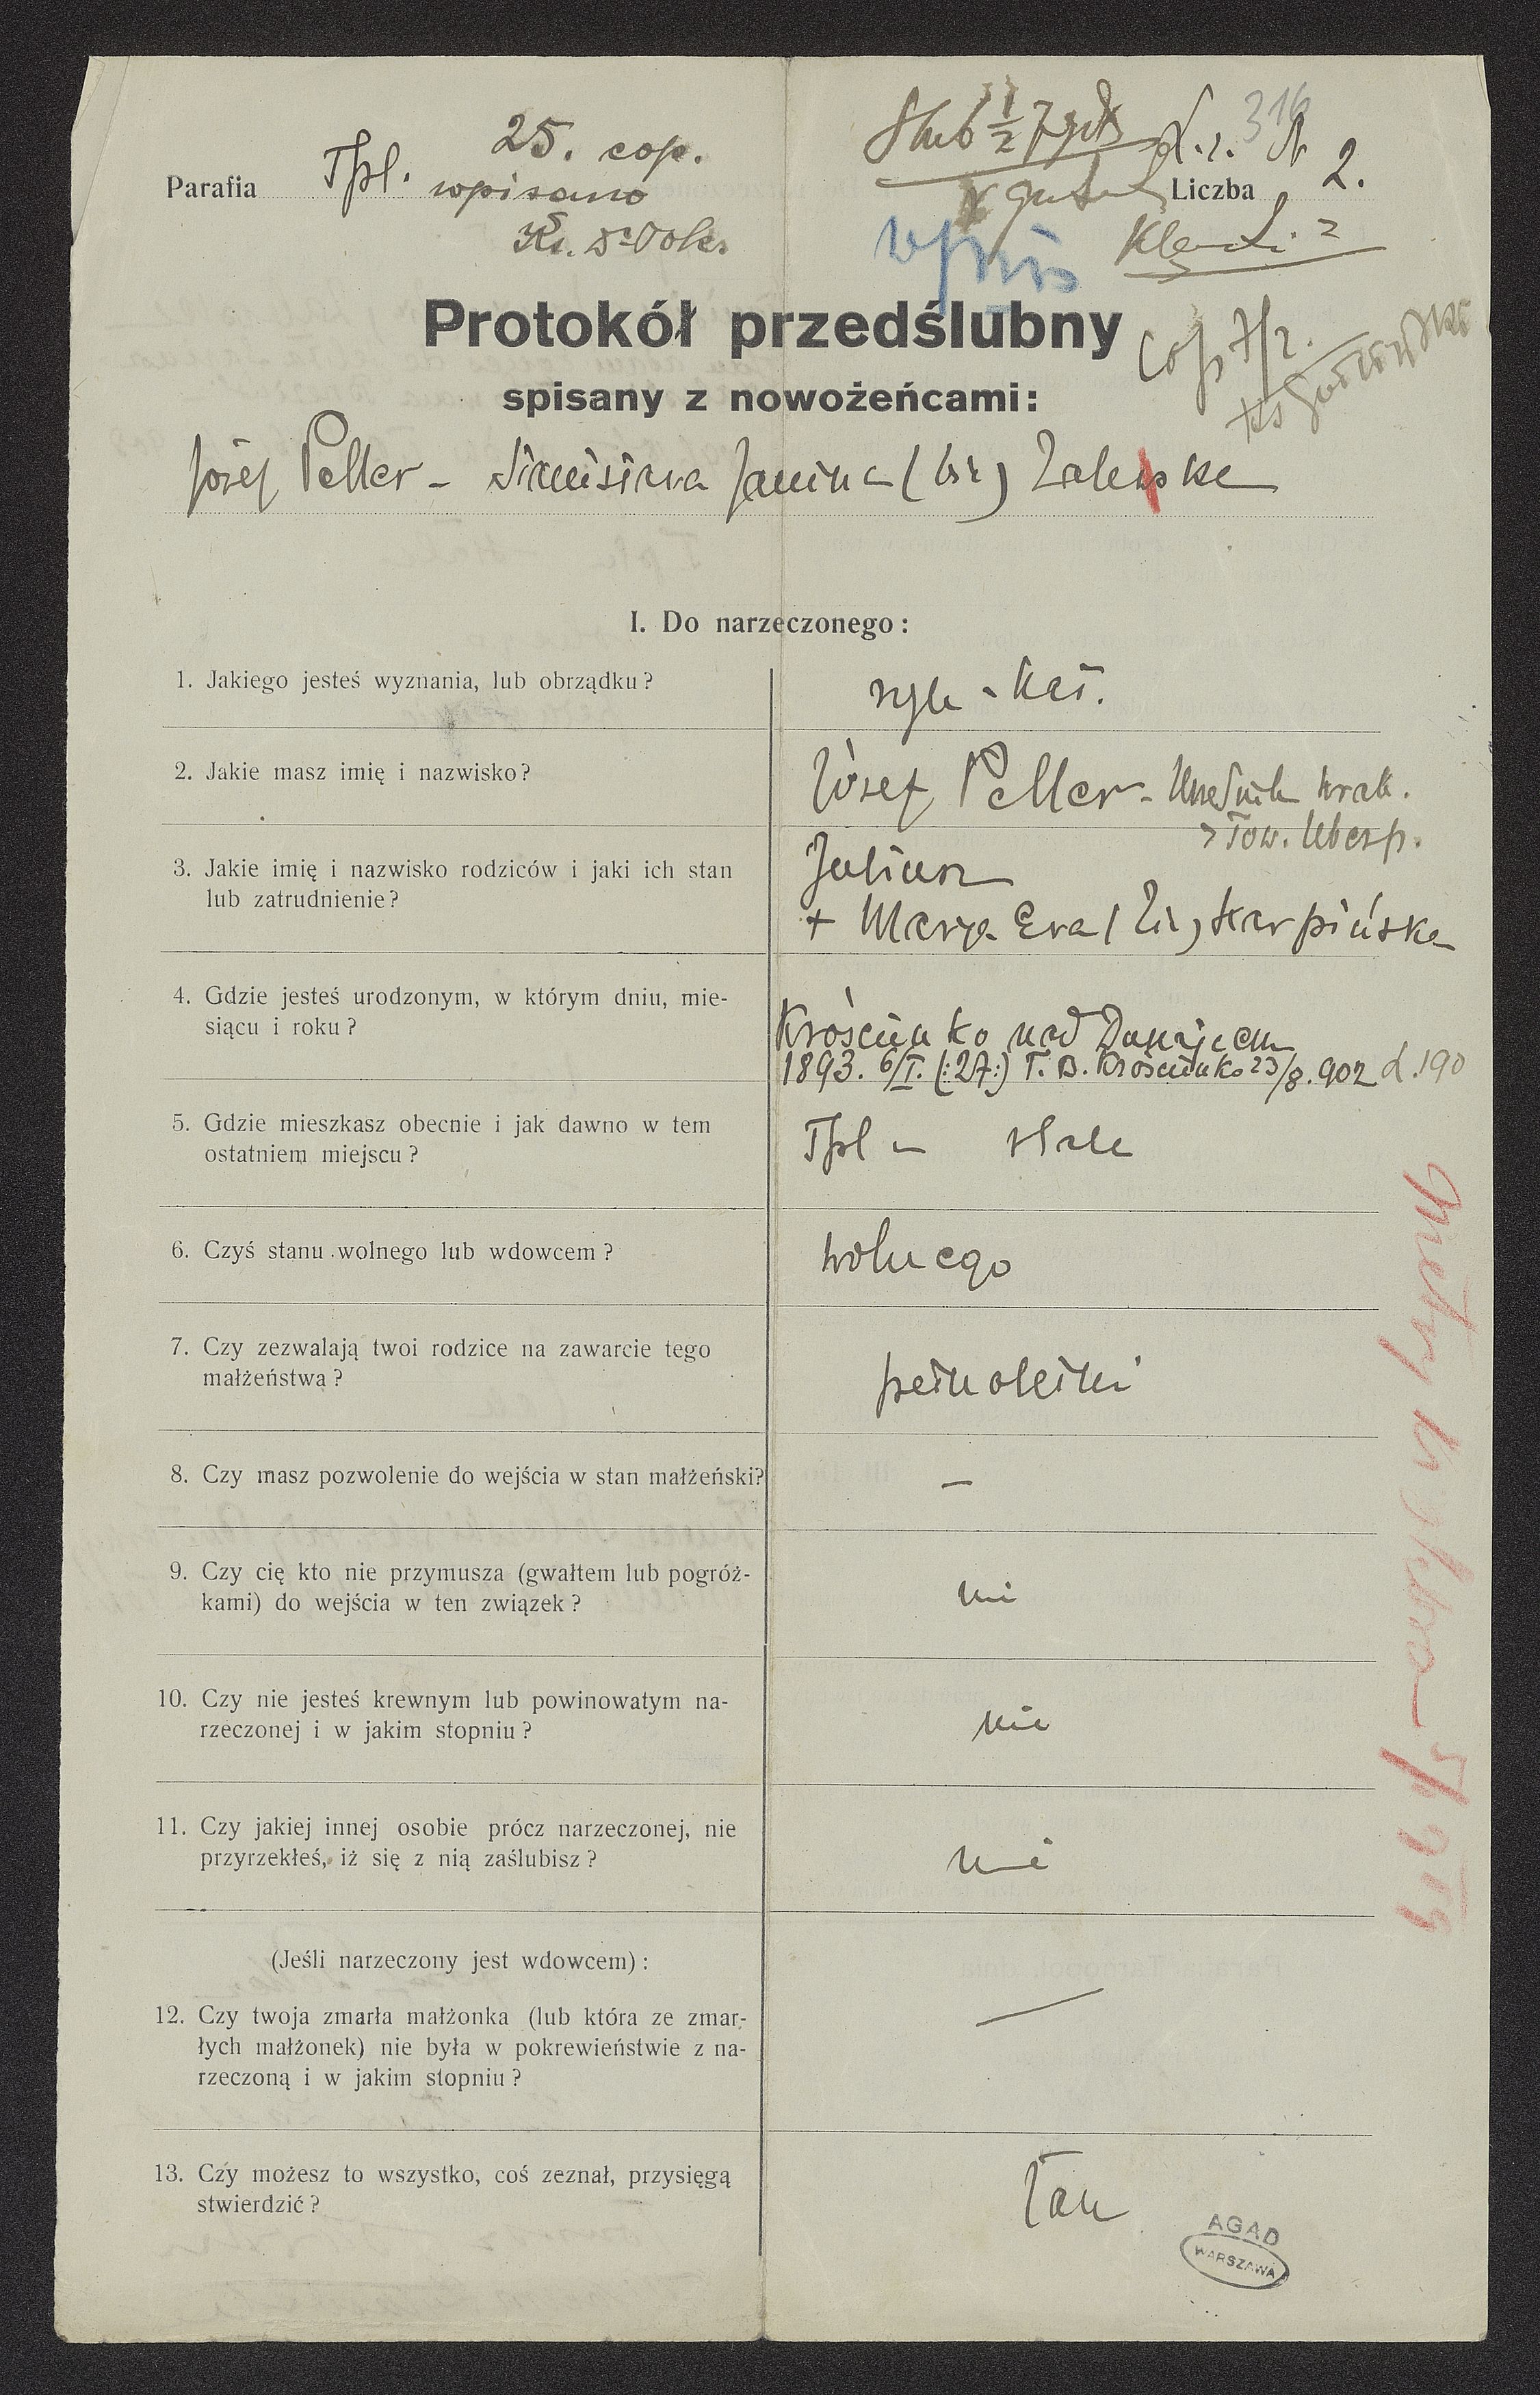 25. cop.
Parafia Tpl. wpisano
Liczba 2.
316
Protokół przedślubny
cop 7/2.
spisany z nowożeńcami:
Józef Peller - Stanisława Janina (bi) Zaleska
I. Do narzeczonego:
1. Jakiego jesteś wyznania, lub obrządku?
rzym - kat.
2. Jakie masz imię i nazwisko?
Józef Peller - Urzędnik krak.
Tow. Ubezp.
3. Jakie imię i nazwisko rodziców i jaki ich stan
lub zatrudnienie?
Juliusz
+ Marya Ewa Karpińska
4. Gdzie jesteś urodzonym, w którym dniu, mie-
siącu i roku?
Krościenko nad Dunajcem
1893. 6/I. (:27:) T. B. Krościenko 23/8. 902 d. 190
5. Gdzie mieszkasz obecnie i jak dawno w tem
ostatniem miejscu?
Tpl - stale
6. Czyś stanu wolnego lub wdowcem?
wolnego
7. Czy zezwalają twoi rodzice na zawarcie tego
małżeństwa?
pełnoletni
8. Czy masz pozwolenie do wejścia w stan małżeński?
—
9. Czy cię kto nie przymusza (gwałtem lub pogróż-
kami) do wejścia w ten związek?
nie
10. Czy nie jesteś krewnym lub powinowatym na-
rzeczonej i w jakim stopniu?
nie
11. Czy jakiej innej osobie prócz narzeczonej, nie
przyrzekłeś, iż się z nią zaślubisz?
nie
(Jeśli narzeczony jest wdowcem):
12. Czy twoja zmarła małżonka (lub która ze zmar-
łych małżonek) nie była w pokrewieństwie z na-
rzeczoną i w jakim stopniu?
—
13. Czy możesz to wszystko, coś zeznał, przysięgą
stwierdzić?
Tak
AGAD
WARSZAWA